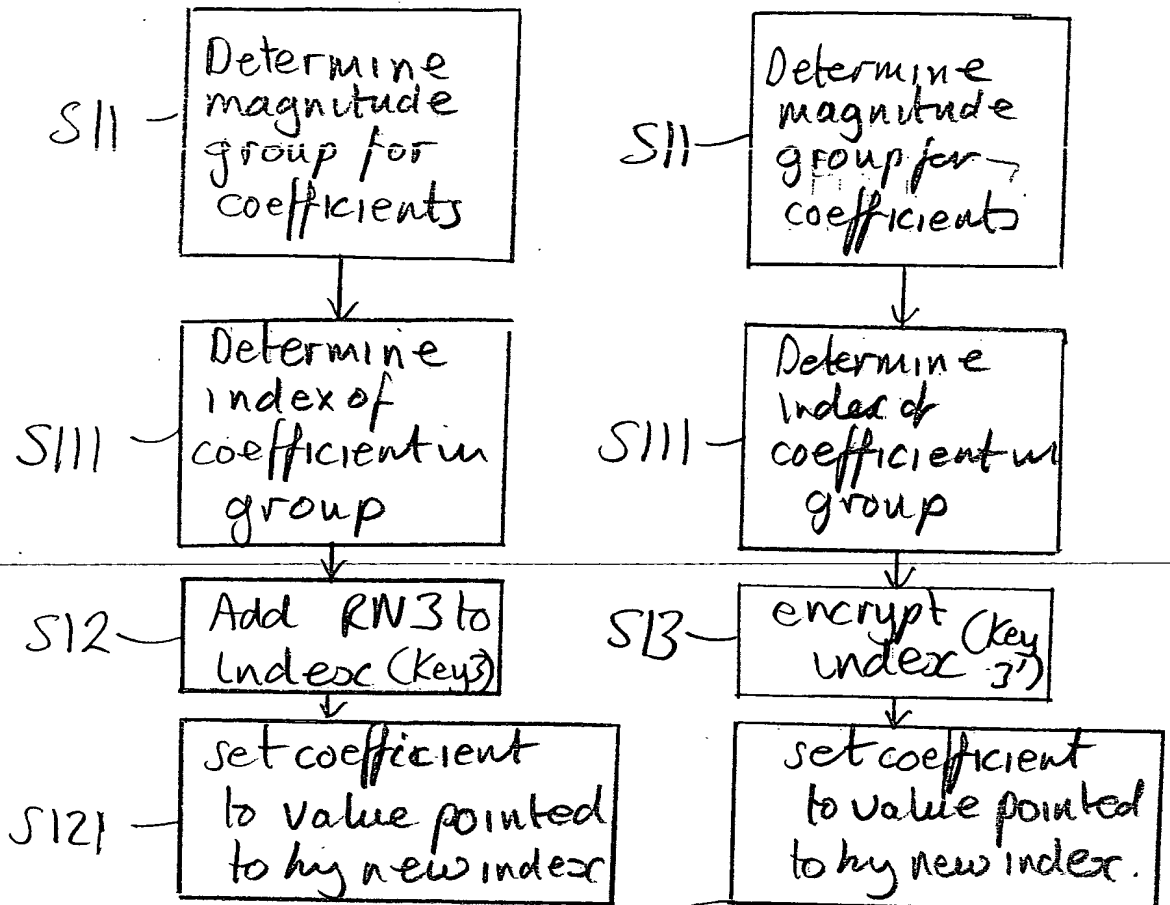 S11
Determine
magnitude
group for
coefficients
S111
Determine
index of
coefficient in
group
S12
Add RN3 to
index (Key3)
S121
set coefficient
to value pointed
to by new index
S11
Determine
magnitude
group for
coefficients
S111
Determine
index of
coefficient in
group
S13
encrypt
index (Key
3')
set coefficient
to value pointed
to by new index.